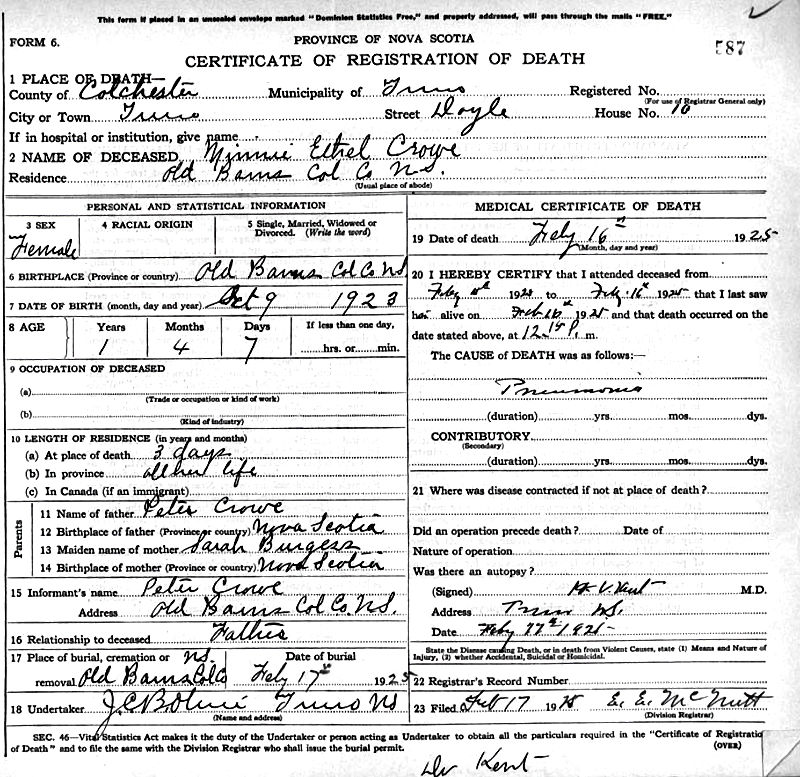 This form if placed in an unsealed envelope marked "Dominion Statistics Free," and property addressed, will pass through the mails "FREE."
FORM 6.
PROVINCE OF NOVA SCOTIA
587
CERTIFICATE OF REGISTRATION OF DEATH
1 PLACE OF DEATH—
County of Colchester Municipality of Truro Registered No.
(For use of Registrar General only)
City or Town Truro Street Doyle House No. 10
If in hospital or institution, give name
2 NAME OF DECEASED Minnie Ethel Crowe
Residence Old Barns Col Co N.S.
(Usual place of abode)
PERSONAL AND STATISTICAL INFORMATION
3 SEX 4 RACIAL ORIGIN 5 Single, Married, Widowed or Divorced. (Write the word)
Female
6 BIRTHPLACE (Province or country) Old Barns Col Co NS
7 DATE OF BIRTH (month, day and year) Oct 9 1923
8 AGE Years Months Days If less than one day,
1 4 7 hrs. or min.
9 OCCUPATION OF DECEASED
(a)
(Trade or occupation or kind of work)
(b)
(Kind of industry)
10 LENGTH OF RESIDENCE (in years and months)
(a) At place of death 3 days
(b) In province all her life
(c) In Canada (if an immigrant)
Parents
11 Name of father Peter Crowe
12 Birthplace of father (Province or country) Nova Scotia
13 Maiden name of mother Sarah Burgess
14 Birthplace of mother (Province or country) Nova Scotia
15 Informant's name Peter Crowe
Address Old Barns Col Co. N.S.
16 Relationship to deceased Father
17 Place of burial, cremation or N.S. Date of burial
removal Old Barns Col Co Feby 17th 1925
18 Undertaker Truro NS
(Name and address)
MEDICAL CERTIFICATE OF DEATH
19 Date of death Feby 16th 1925
(Month, day and year)
20 I HEREBY CERTIFY that I attended deceased from
Feby 1925 to Feby. 16th 1925 that I last saw
her alive on Feb 16th 1925 and that death occurred on the
date stated above, at 12.15 P. m.
The CAUSE of DEATH was as follows:—
Pneumonia
(duration) yrs. mos. dys.
CONTRIBUTORY
(Secondary)
(duration) yrs. mos. dys.
21 Where was disease contracted if not at place of death?
Did an operation precede death? Date of
Nature of operation
Was there an autopsy?
(Signed) H. V. Kent M.D.
Address Truro N.S.
Date Feby 17th 1925
State the Disease causing Death, or in death from Violent Causes, state (1) Means and Nature of
Injury, (2) whether Accidental, Suicidal or Homicidal.
22 Registrar's Record Number
23 Filed Feb 17 1925 E. E. McNutt
(Division Registrar)
SEC. 46—Vital Statistics Act makes it the duty of the Undertaker or person acting as Undertaker to obtain all the particulars required in the "Certificate of Registration
of Death" and to file the same with the Division Registrar who shall issue the burial permit.
(OVER)
Dr Kent